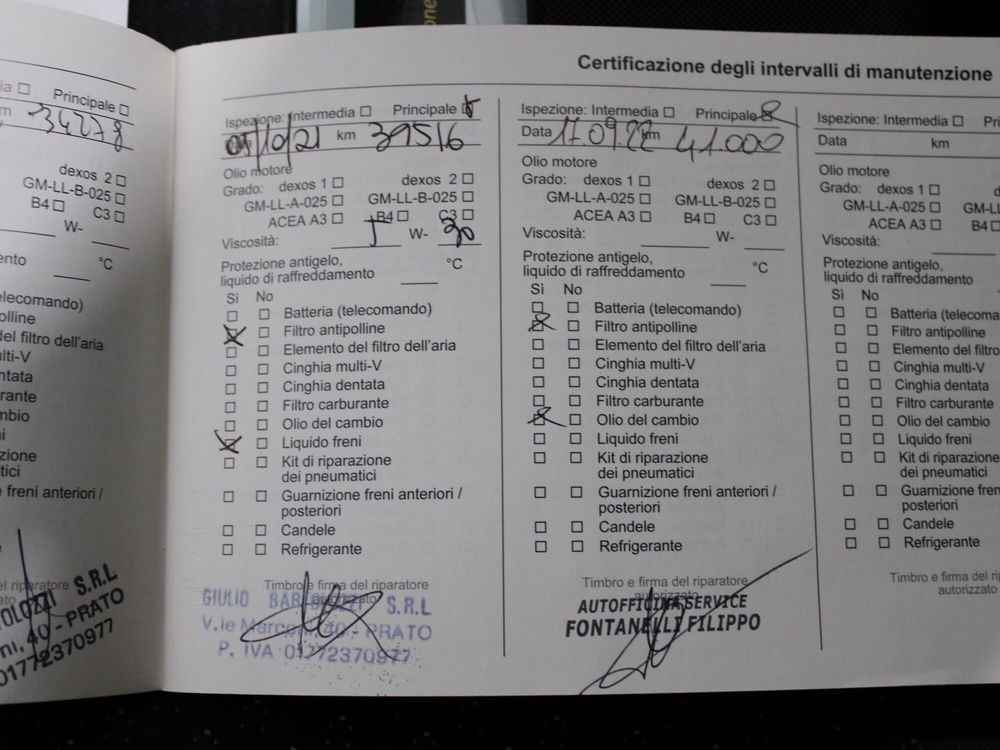 Certificazione degli intervalli di manutenzione
Principale
34278
dexos 2
GM-LL-B-025
B4 C3
W-
°C
Ispezione: Intermedia Principale
05/10/21 km 39516
Olio motore
Grado: dexos 1 dexos 2
GM-LL-A-025 GM-LL-B-025
ACEA A3 B4 C3
Viscosità: 5 W- 30
Protezione antigelo,
liquido di raffreddamento °C
Sì No
Batteria (telecomando)
Filtro antipolline
Elemento del filtro dell'aria
Cinghia multi-V
Cinghia dentata
Filtro carburante
Olio del cambio
Liquido freni
Kit di riparazione
dei pneumatici
Guarnizione freni anteriori /
posteriori
Candele
Refrigerante
Timbro e firma del riparatore
autorizzato
GIULIO BARTOLOZZI S.R.L
V.le Marconi, 40 - PRATO
P. IVA 01772370977
Ispezione: Intermedia Principale
Data 17.09.22 km 41.000
Olio motore
Grado: dexos 1 dexos 2
GM-LL-A-025 GM-LL-B-025
ACEA A3 B4 C3
Viscosità: W-
Protezione antigelo,
liquido di raffreddamento °C
Sì No
Batteria (telecomando)
Filtro antipolline
Elemento del filtro dell'aria
Cinghia multi-V
Cinghia dentata
Filtro carburante
Olio del cambio
Liquido freni
Kit di riparazione
dei pneumatici
Guarnizione freni anteriori /
posteriori
Candele
Refrigerante
Timbro e firma del riparatore
autorizzato
AUTOFFICINA SERVICE
FONTANELLI FILIPPO
Ispezione: Intermedia
Data km
Olio motore
Grado: dexos 1
GM-LL-A-025
ACEA A3
Viscosità:
Protezione antigelo,
liquido di raffreddamento
Sì No
Batteria (telecoma
Filtro antipolline
Elemento del filtro
Cinghia multi-V
Cinghia dentata
Filtro carburante
Olio del cambio
Liquido freni
Kit di riparazione
dei pneumatici
Guarnizione freni
posteriori
Candele
Refrigerante
Timbro e firma del
autorizzato